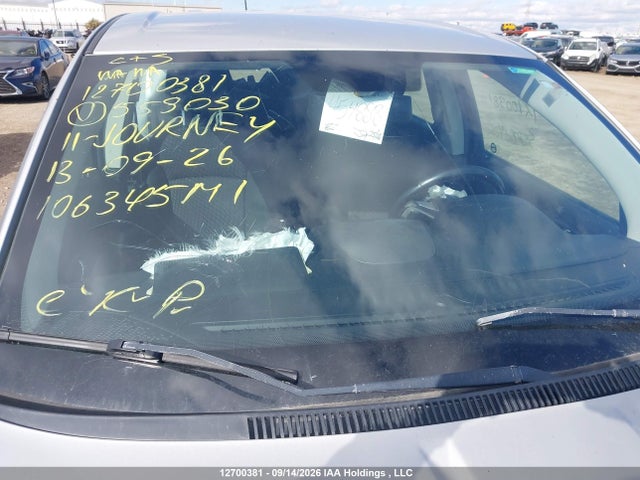 C+S
12700381
(V) 559030
11-JOURNEY
13-09-26
106345M1
e'K'P
12700381 - 09/14/2026 IAA Holdings , LLC